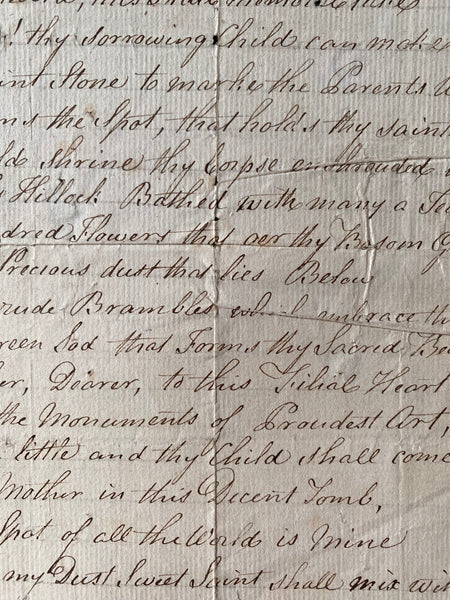 ! thy sorrowing Child can make
Stone to marke the Parents
the Spot, that hold's thy saint
shrine thy Corpse enshrouded
Hillock Bathed with many a Tea
dred Flowers that oer thy Bosom G
Precious dust that lies Below
rude Brambles which embrace th
reen Sod that Forms thy Sacred Be
er, Dearer, to this Filial Heart
the Monuments of Proudest Art,
little and thy Child shall come
Mother in this Decent Tomb,
Spot of all the World is Mine
my Dust Sweet Saint shall mix wi